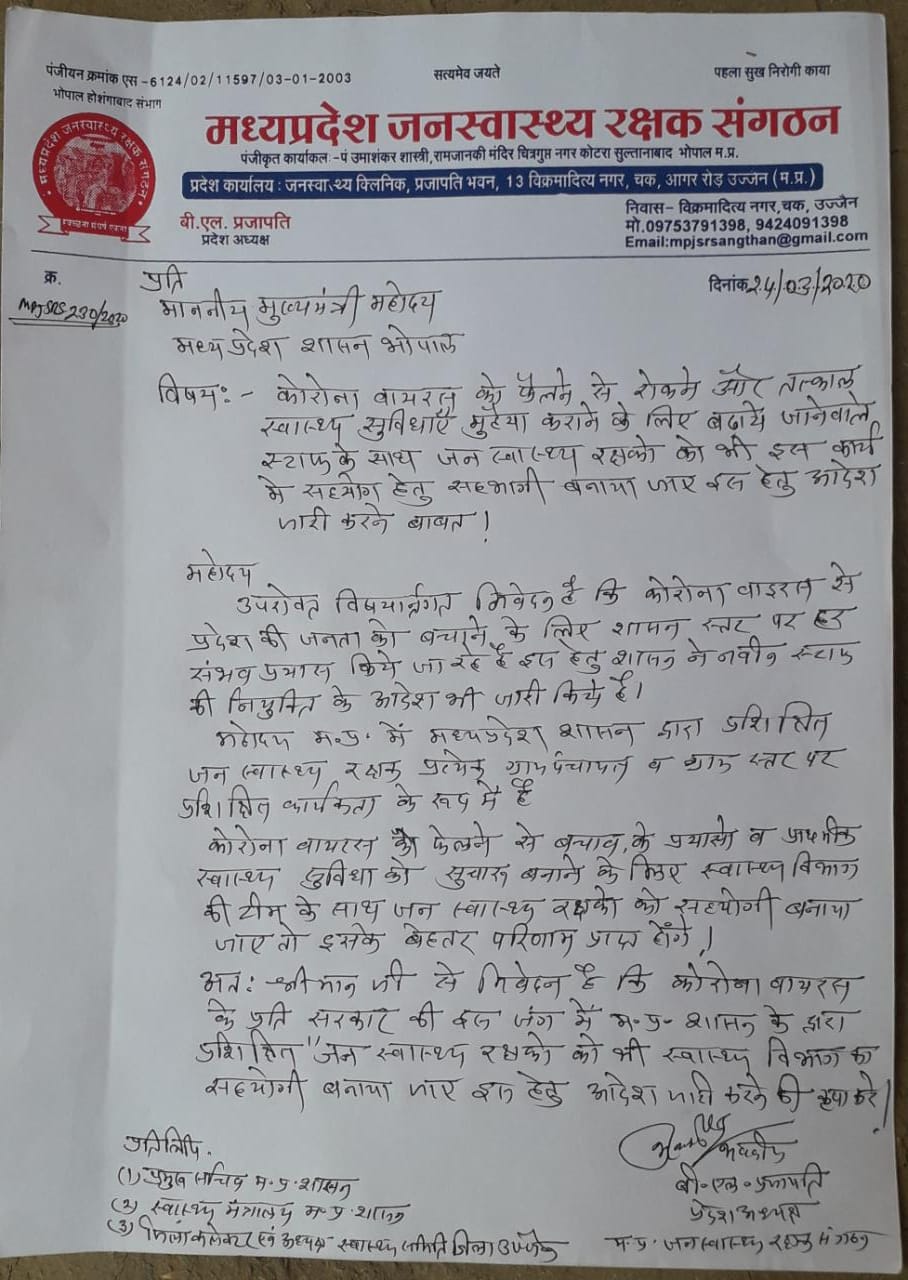 पंजीयन क्रमांक एस -6124/02/11597/03-01-2003
सत्यमेव जयते
पहला सुख निरोगी काया
भोपाल होशंगाबाद संभाग
मध्यप्रदेश जनस्वास्थ्य रक्षक संगठन
मध्यप्रदेश जनस्वास्थ्य रक्षक संगठन
पंजीकृत कार्याकल :-पं उमाशंकर शास्त्री,रामजानकी मंदिर चित्रगुप्त नगर कोटरा सुल्तानाबाद भोपाल म.प्र.
प्रदेश कार्यालय : जनस्वास्थ्य क्लिनिक, प्रजापति भवन, 13 विक्रमादित्य नगर, चक, आगर रोड़ उज्जेन (म.प्र.)
बी.एल. प्रजापति
प्रदेश अध्यक्ष
निवास- विक्रमादित्य नगर,चक, उज्जैन
मो.09753791398, 9424091398
Email:mpjsrsangthan@gmail.com
क्र.
MPJSRS 230/2020
दिनांक 24/03/2020
प्रति
माननीय मुख्यमंत्री महोदय
मध्यप्रदेश शासन भोपाल
विषय:- कोरोना वायरस को फैलने से रोकने और तत्काल
स्वास्थ्य सुविधाएँ मुहैया कराने के लिए बढाये जानेवाले
स्टाफ के साथ जन स्वास्थ्य रक्षको को भी इस कार्य
मे सहयोग हेतु सहभागी बनाया जाए इस हेतु आदेश
जारी करने बाबत!
महोदय
उपरोक्त विषयार्न्तगत निवेदन है कि कोरोना वाइरस से
प्रदेश की जनता को बचाने के लिए शासन स्तर पर हर
संभव प्रयास किये जा रहे है इस हेतु शासन ने नवीन स्टाफ
की नियुक्ति के आदेश भी जारी किये है।
महोदय म.प्र. में मध्यप्रदेश शासन द्वारा प्रशिक्षित
जन स्वास्थ्य रक्षक प्रत्येक ग्रामपंचायत व ग्राम स्तर पर
प्रशिक्षित कार्यकर्ता के रूप में है
कोरोना वायरस को फेलने से बचाव के प्रयासो व प्राथमिक
स्वास्थ्य सुविधा को सुचारू बनाने के लिए स्वास्थ्य विभाग
की टीम के साथ जन स्वास्थ्य रक्षको को सहयोगी बनाया
जाए तो इसके बेहतर परिणाम प्राप्त होंगे!
अत: श्रीमान जी से निवेदन है कि कोरोना वायरस
के प्रति सरकार की इस जंग में म.प्र. शासन के द्वारा
प्रशिक्षित "जन स्वास्थ्य रक्षको को भी स्वास्थ्य विभाग का
सहयोगी बनाया जाए इस हेतु आदेश जारी करने की कृपा करे!
प्रतिलिपि.
(1) प्रमुख सचिव म.प्र. शासन
(2) स्वास्थ्य मंत्रालय म.प्र. शासन
(3) जिला कलेक्टर एवं अध्यक्ष स्वास्थ्य समिति जिला उज्जैन
बी.एल. प्रजापति
प्रदेश अध्यक्ष
म.प्र. जन स्वास्थ्य रक्षक संगठन